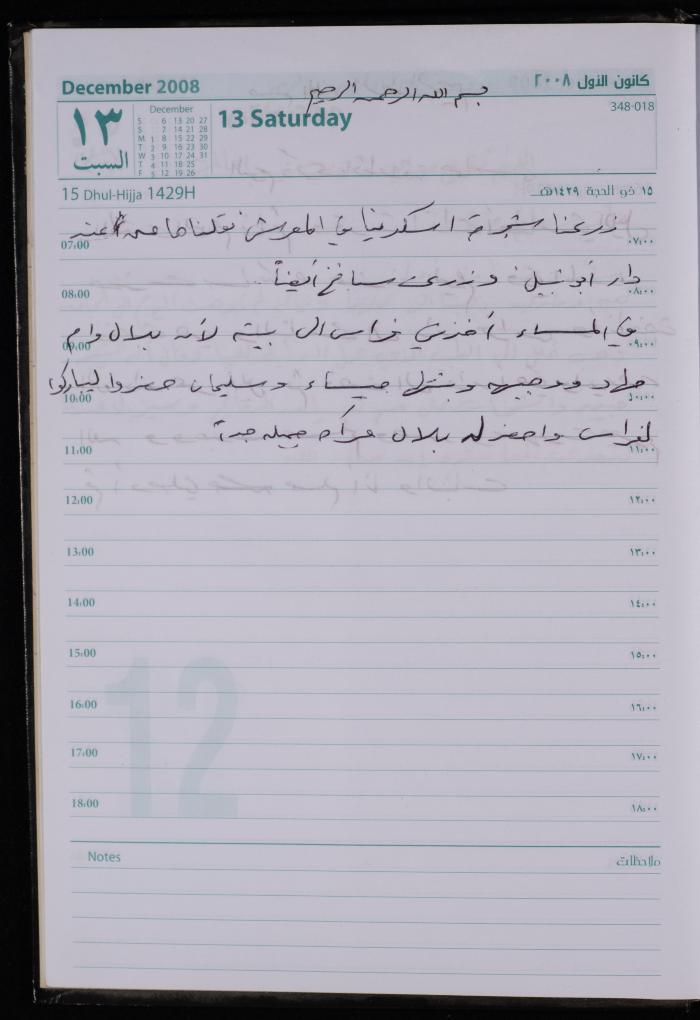 December 2008
كانون الأول ٢٠٠٨
بسم الله الرحمن الرحيم
١٣
السبت
December
S 6 13 20 27
S 7 14 21 28
M 1 8 15 22 29
T 2 9 16 23 30
W 3 10 17 24 31
T 4 11 18 25
F 5 12 19 26
13 Saturday
348-018
15 Dhul-Hijja 1429H
١٥ ذو الحجة ١٤٢٩هـ
زرعنا شجرة اسكدنيا في المعرش نقلناها من عند
07:00 ٠٧:٠٠
دار أبو نبيل وزرعت سبانخ أيضاً
08:00 ٠٨:٠٠
في المساء أخذني فراس الى بيته لأن بلال وام
09:00 ٠٩:٠٠
جهاد ووجيهه وبشرى ميساء وسليمان حضروا ليباركوا
10:00 ١٠:٠٠
لفراس واحضر له بلال مرآه جميله جداً
11:00 ١١:٠٠
12:00 ١٢:٠٠
13:00 ١٣:٠٠
14:00 ١٤:٠٠
15:00 ١٥:٠٠
16:00 ١٦:٠٠
17:00 ١٧:٠٠
18:00 ١٨:٠٠
12
Notes ملاحظات